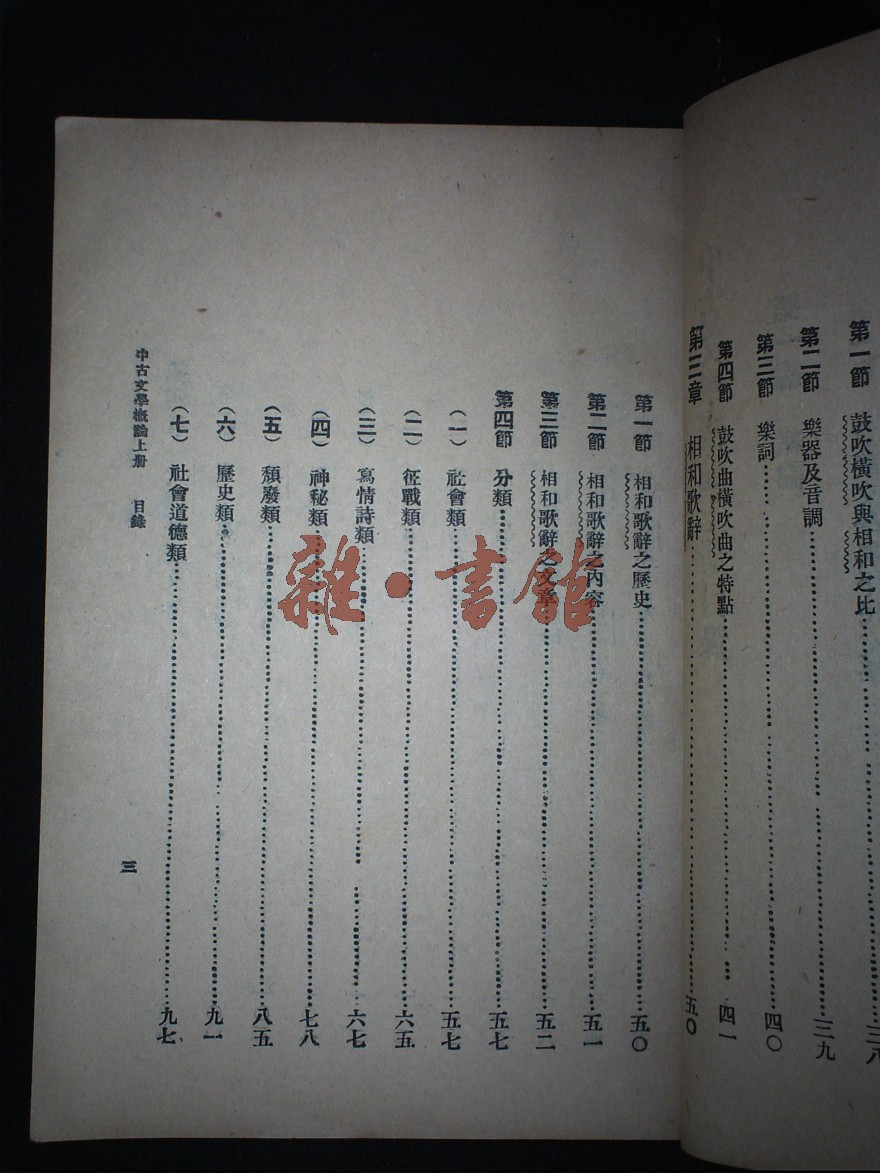 第一節　鼓吹橫吹與相和之比……三八
第二節　樂器及音調……三九
第三節　樂詞……四〇
第四節　鼓吹曲橫吹曲之特點……四一
第三章　相和歌辭……五〇
第一節　相和歌辭之歷史……五〇
第二節　相和歌辭之內容……五一
第三節　相和歌辭之文章……五二
第四節　分類……五七
（一）社會類……五七
（二）征戰類……六五
（三）寫情詩類……六七
（四）神秘類……七八
（五）頹廢類……八五
（六）歷史類……九一
（七）社會道德類……九七
中古文學概論上册　目錄
三
雜·書館